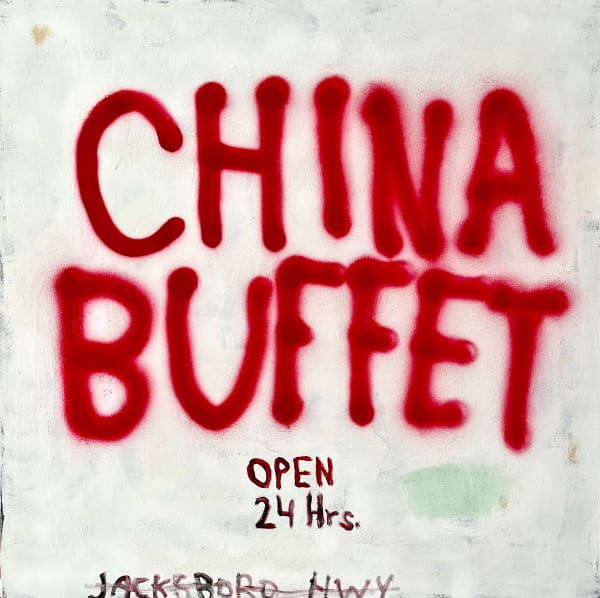 CHINA
BUFFET
OPEN
24 Hrs.
JACKSBORO HWY